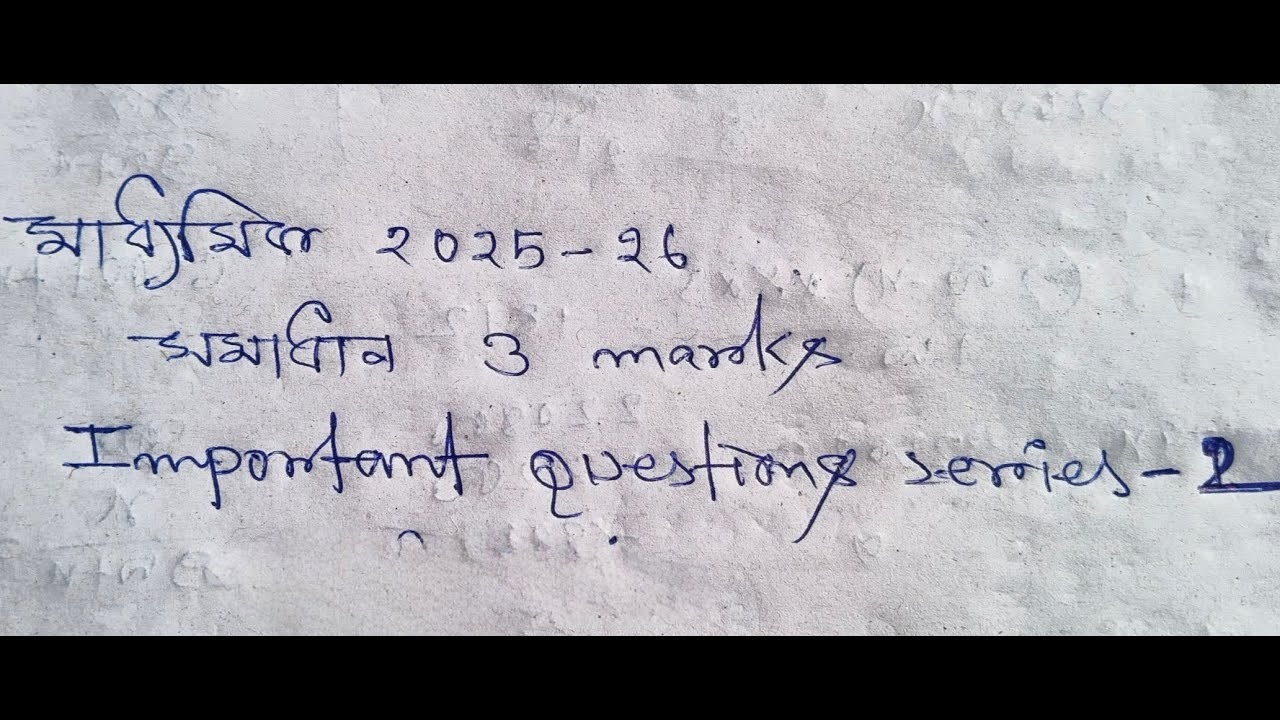 মাধ্যমিক 2025-26
সমাধান 3 marks
Important questions series-2